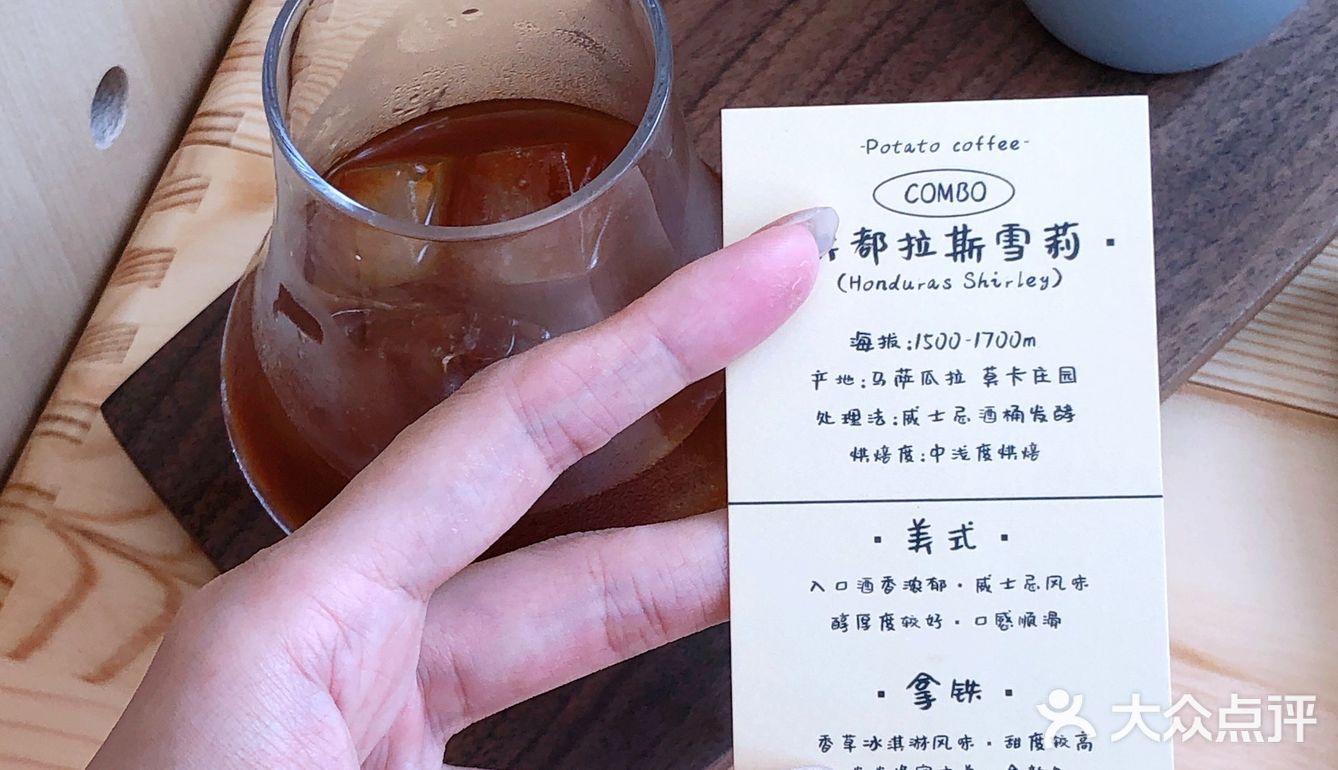 -Potato coffee-
COMBO
都拉斯雪莉
(Honduras Shirley)
海拔:1500-1700m
产地:马萨瓜拉 莫卡庄园
处理法:威士忌酒桶发酵
烘焙度:中浅度烘焙
· 美式 ·
入口酒香浓郁·威士忌风味
醇厚度较好·口感顺滑
· 拿铁 ·
香草冰淇淋风味·甜度较高
大众点评